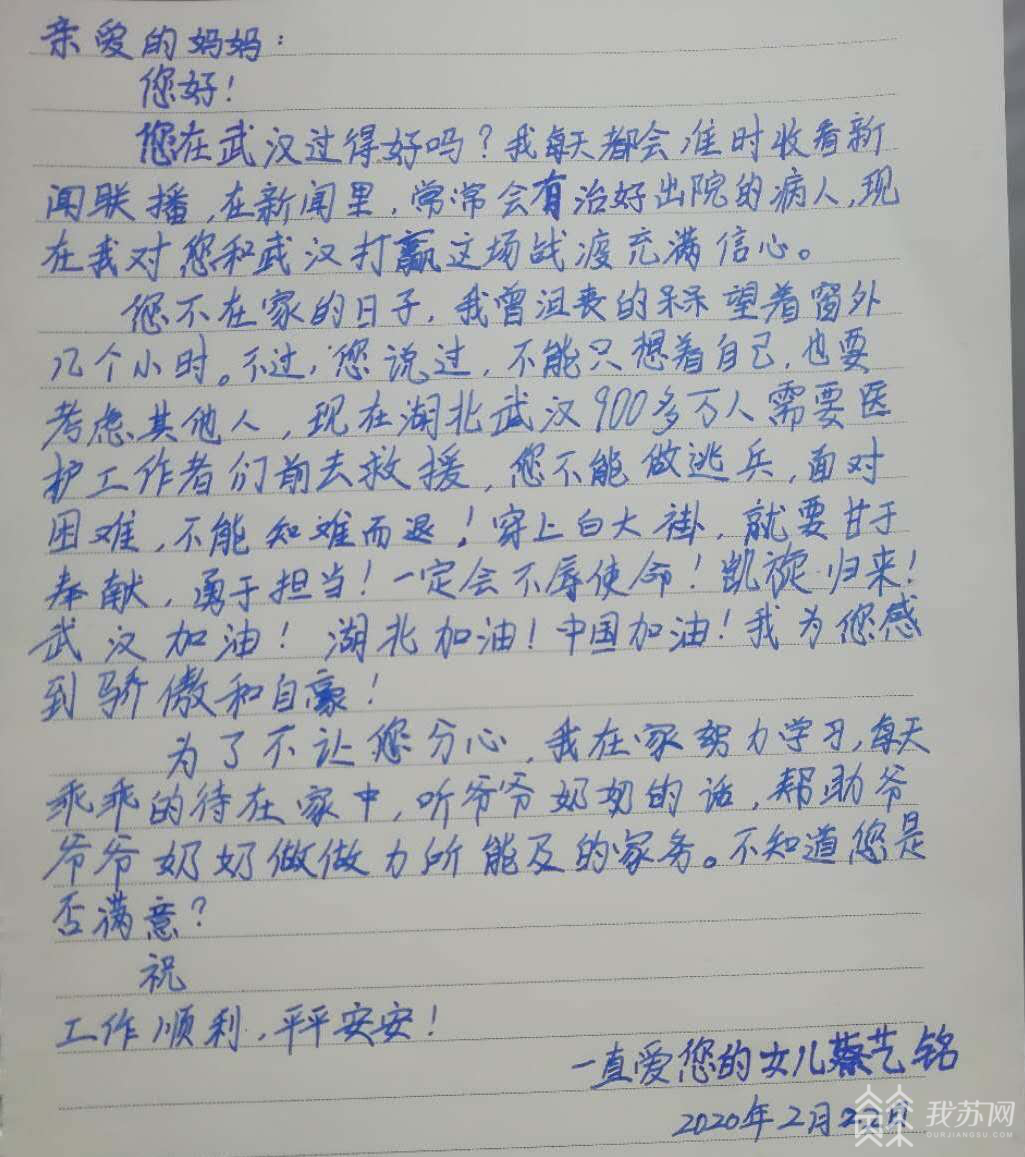 亲爱的妈妈：
您好！
您在武汉过得好吗？我每天都会准时收看新
闻联播，在新闻里，常常会有治好出院的病人，现
在我对您和武汉打赢这场战疫充满信心。
您不在家的日子，我曾沮丧的呆呆望着窗外
几个小时。不过，您说过，不能只想着自己，也要
考虑其他人，现在湖北武汉900多万人需要医
护工作者们前去救援，您不能做逃兵，面对
困难，不能知难而退！穿上白大褂，就要甘于
奉献，勇于担当！一定会不辱使命！凯旋归来！
武汉加油！湖北加油！中国加油！我为您感
到骄傲和自豪！
为了不让您分心，我在家努力学习，每天
乖乖的待在家中，听爷爷奶奶的话，帮助爷
爷爷奶奶做做力所能及的家务。不知道您是
否满意？
祝
工作顺利，平平安安！
一直爱您的女儿蔡艺铭
2020年2月22日
我苏网
OURJIANGSU.COM